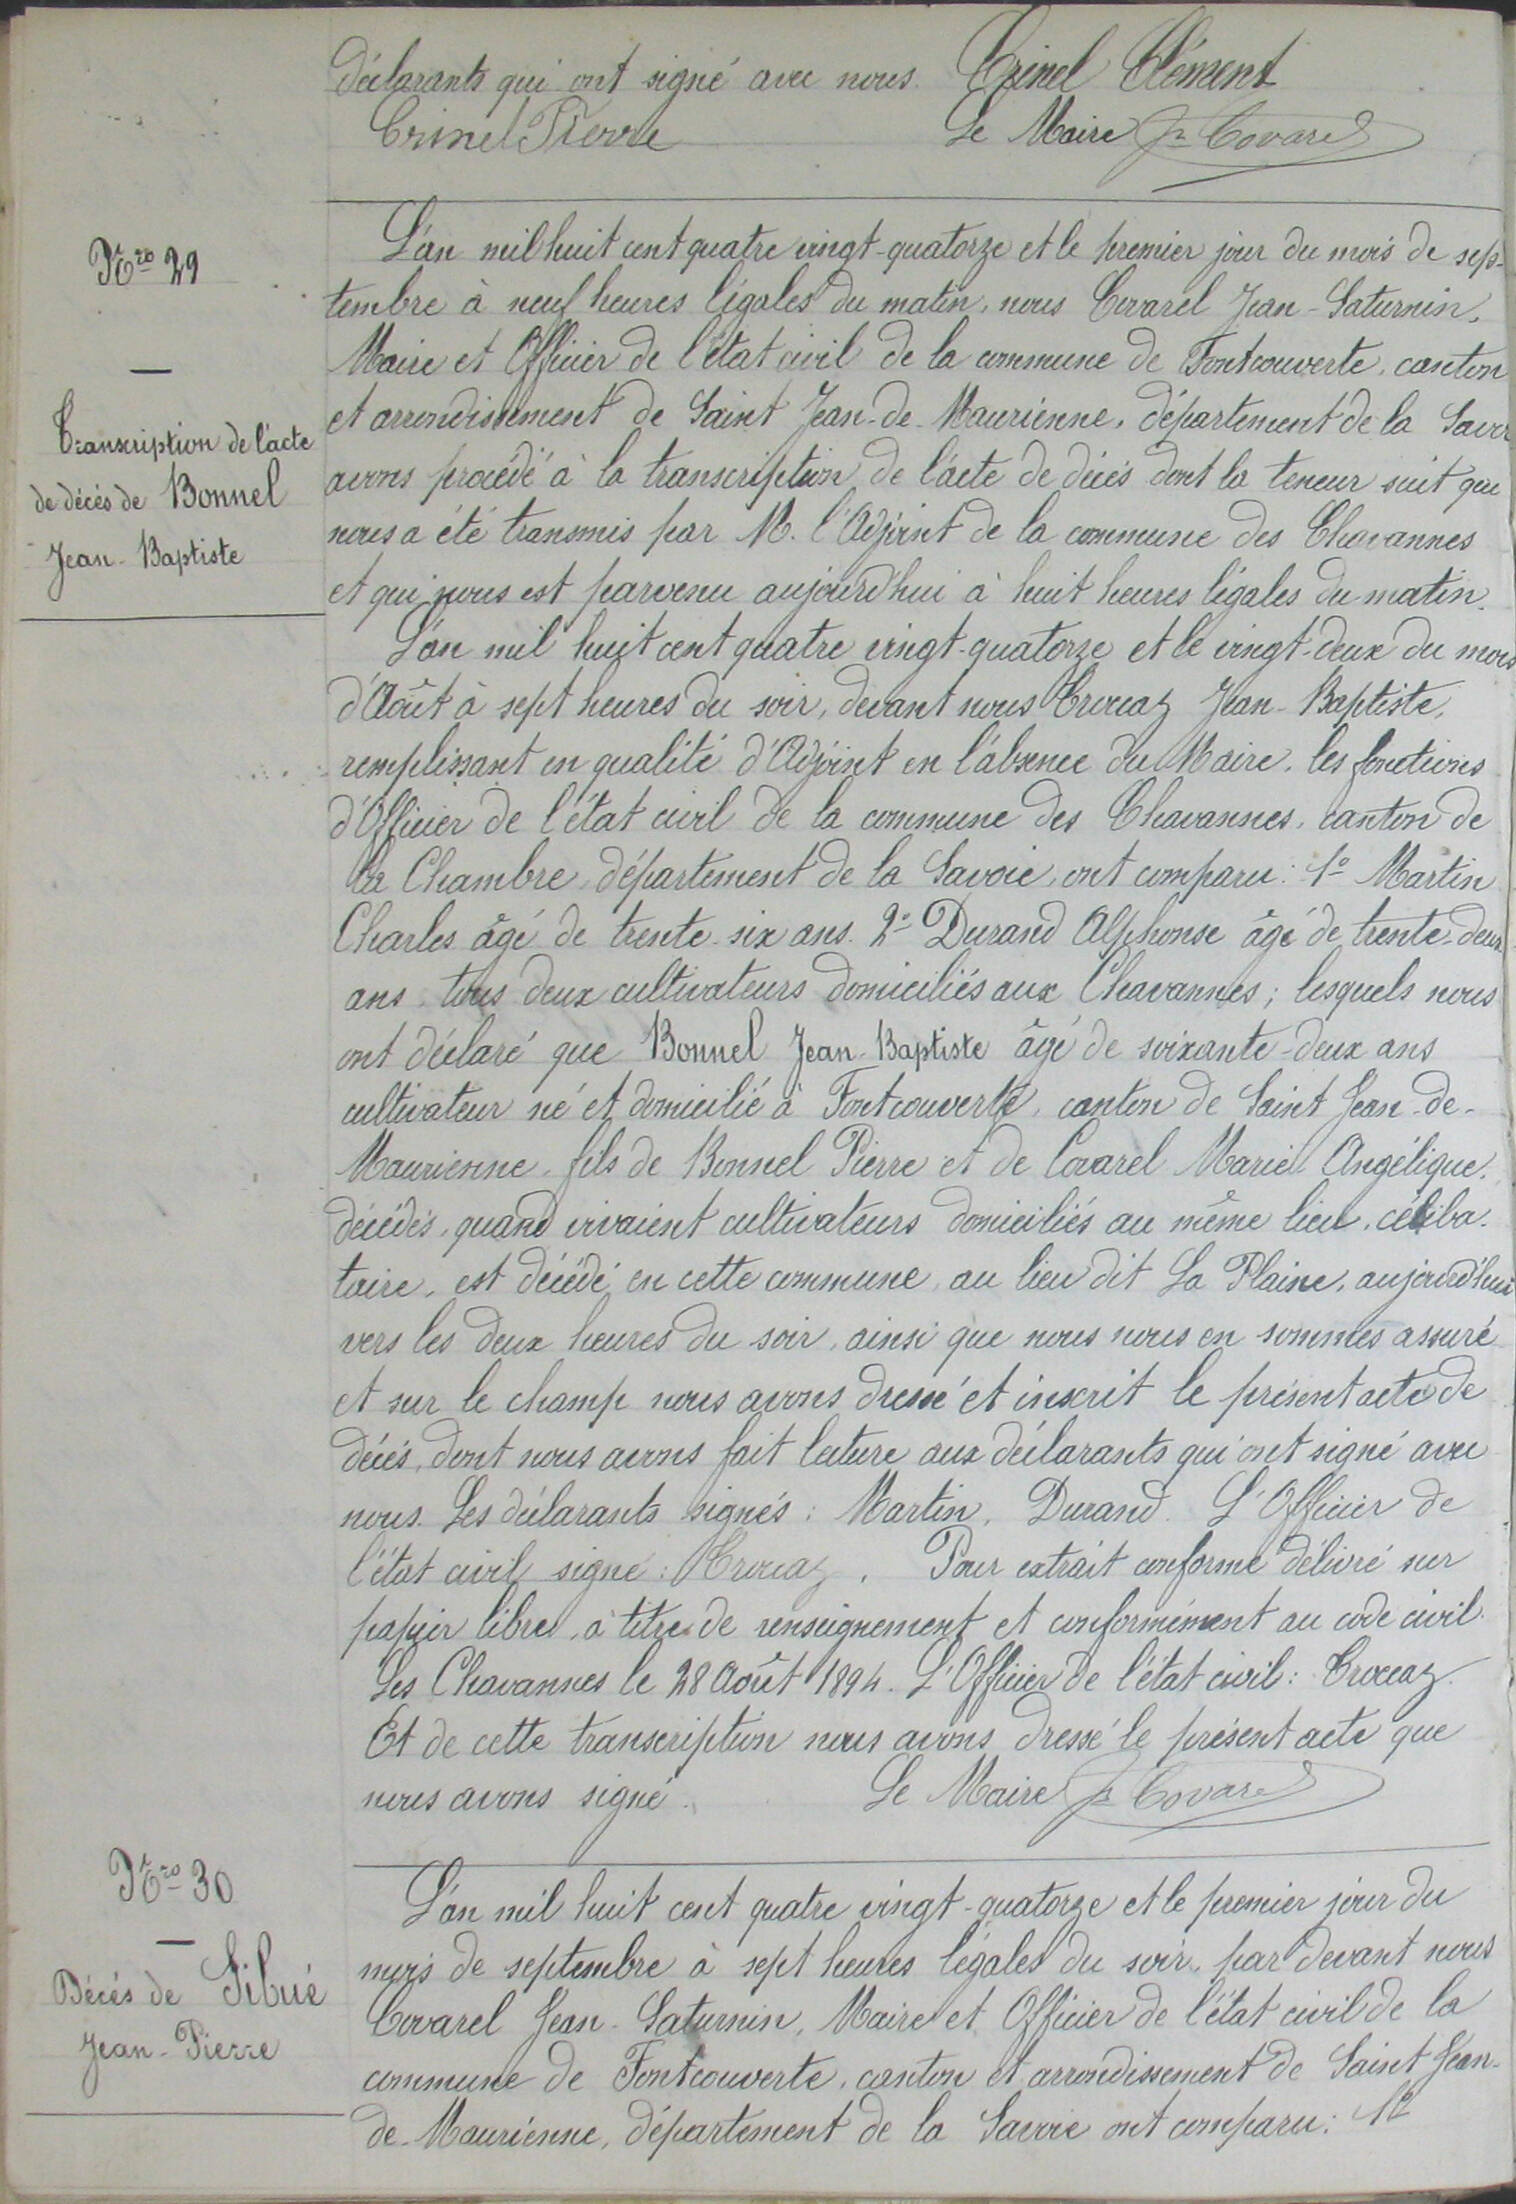 déclarants qui ont signé avec nous. Crinel Clément
Crinel Pierre Le Maire Jn Covarel
Nro 29
Transcription de l'acte
de décès de Bonnel
Jean-Baptiste
L'an mil huit cent quatre vingt-quatorze et le premier jour du mois de sep-
tembre à neuf heures légales du matin, nous Covarel Jean-Saturnin,
Maire et Officier de l'état civil de la commune de Fontcouverte, canton
et arrondissement de Saint Jean-de-Maurienne, département de la Savoie
avons procédé à la transcription de l'acte de décès dont la teneur suit que
nous a été transmis par M. l'Adjoint de la commune des Chavannes
et qui nous est parvenu aujourd'hui à huit heures légales du matin.
L'an mil huit cent quatre vingt-quatorze et le vingt-deux du mois
d'Août à sept heures du soir, devant nous Croccaz Jean-Baptiste,
remplissant en qualité d'Adjoint en l'absence du Maire, les fonctions
d'Officier de l'état civil de la commune des Chavannes, canton de
La Chambre, département de la Savoie, ont comparu: 1º Martin
Charles âgé de trente-six ans. 2º Durand Alphonse âgé de trente-deux
ans, tous deux cultivateurs domiciliés aux Chavannes; lesquels nous
ont déclaré que Bonnel Jean-Baptiste âgé de soixante-deux ans
cultivateur né et domicilié à Fontcouverte, canton de Saint Jean-de-
Maurienne, fils de Bonnel Pierre et de Covarel Marie Angélique,
décédés, quand vivaient cultivateurs domiciliés au même lieu, céliba-
taire, est décédé en cette commune, au lieu dit La Plaine, aujourd'hui
vers les deux heures du soir, ainsi que nous nous en sommes assuré
et sur le champ nous avons dressé et inscrit le présent acte de
décès, dont nous avons fait lecture aux déclarants qui ont signé avec
nous. Les déclarants signés: Martin, Durand. L'Officier de
l'état civil signé: Croccaz. Pour extrait conforme délivré sur
papier libre, à titre de renseignement et conformément au code civil.
Les Chavannes le 28 Août 1894. L'Officier de l'état civil: Croccaz.
Et de cette transcription nous avons dressé le présent acte que
nous avons signé. Le Maire Jn Covarel
Nro 30
Décès de Sibué
Jean-Pierre
L'an mil huit cent quatre vingt-quatorze et le premier jour du
mois de septembre à sept heures légales du soir, par devant nous
Covarel Jean-Saturnin, Maire et Officier de l'état civil de la
commune de Fontcouverte, canton et arrondissement de Saint Jean-
de-Maurienne, département de la Savoie ont comparu: 1º